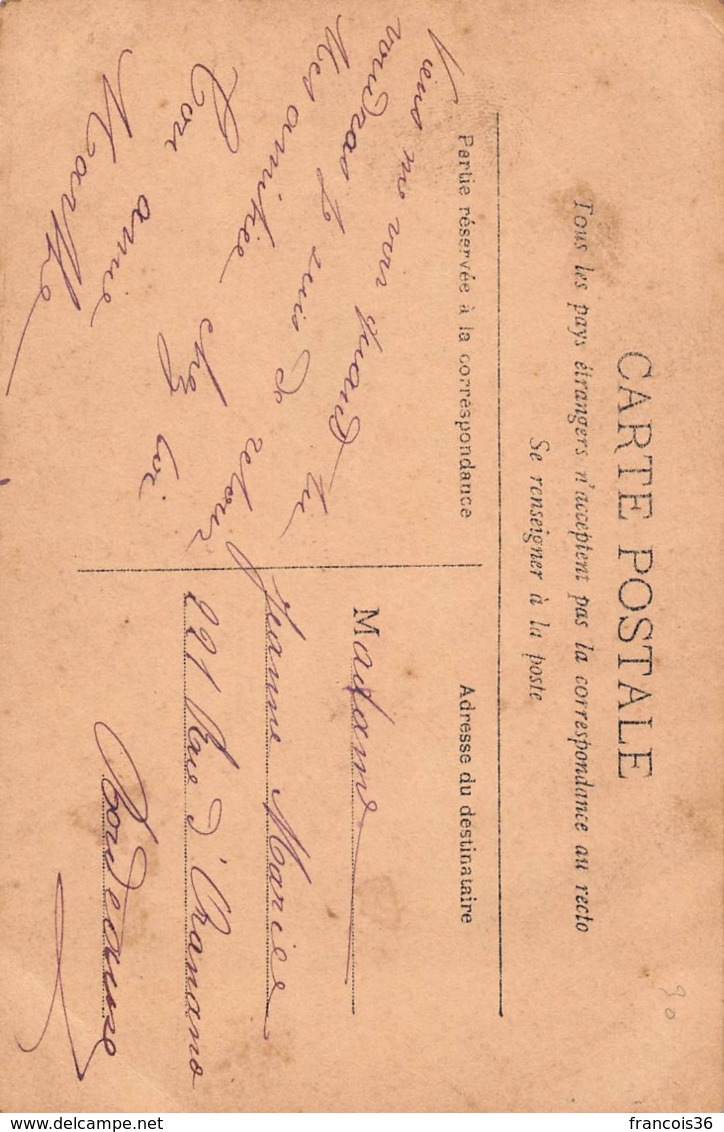 CARTE POSTALE
Tous les pays étrangers n'acceptent pas la correspondance au recto
Se renseigner à la poste
Partie réservée à la correspondance
Viens me voir quand tu
voudras je suis de retour
Mes amitiés chez toi
Ton amie
Marthe
Adresse du destinataire
Madame
Jeanne Maries
221 Rue d'Ornano
Bordeaux
30
francois36